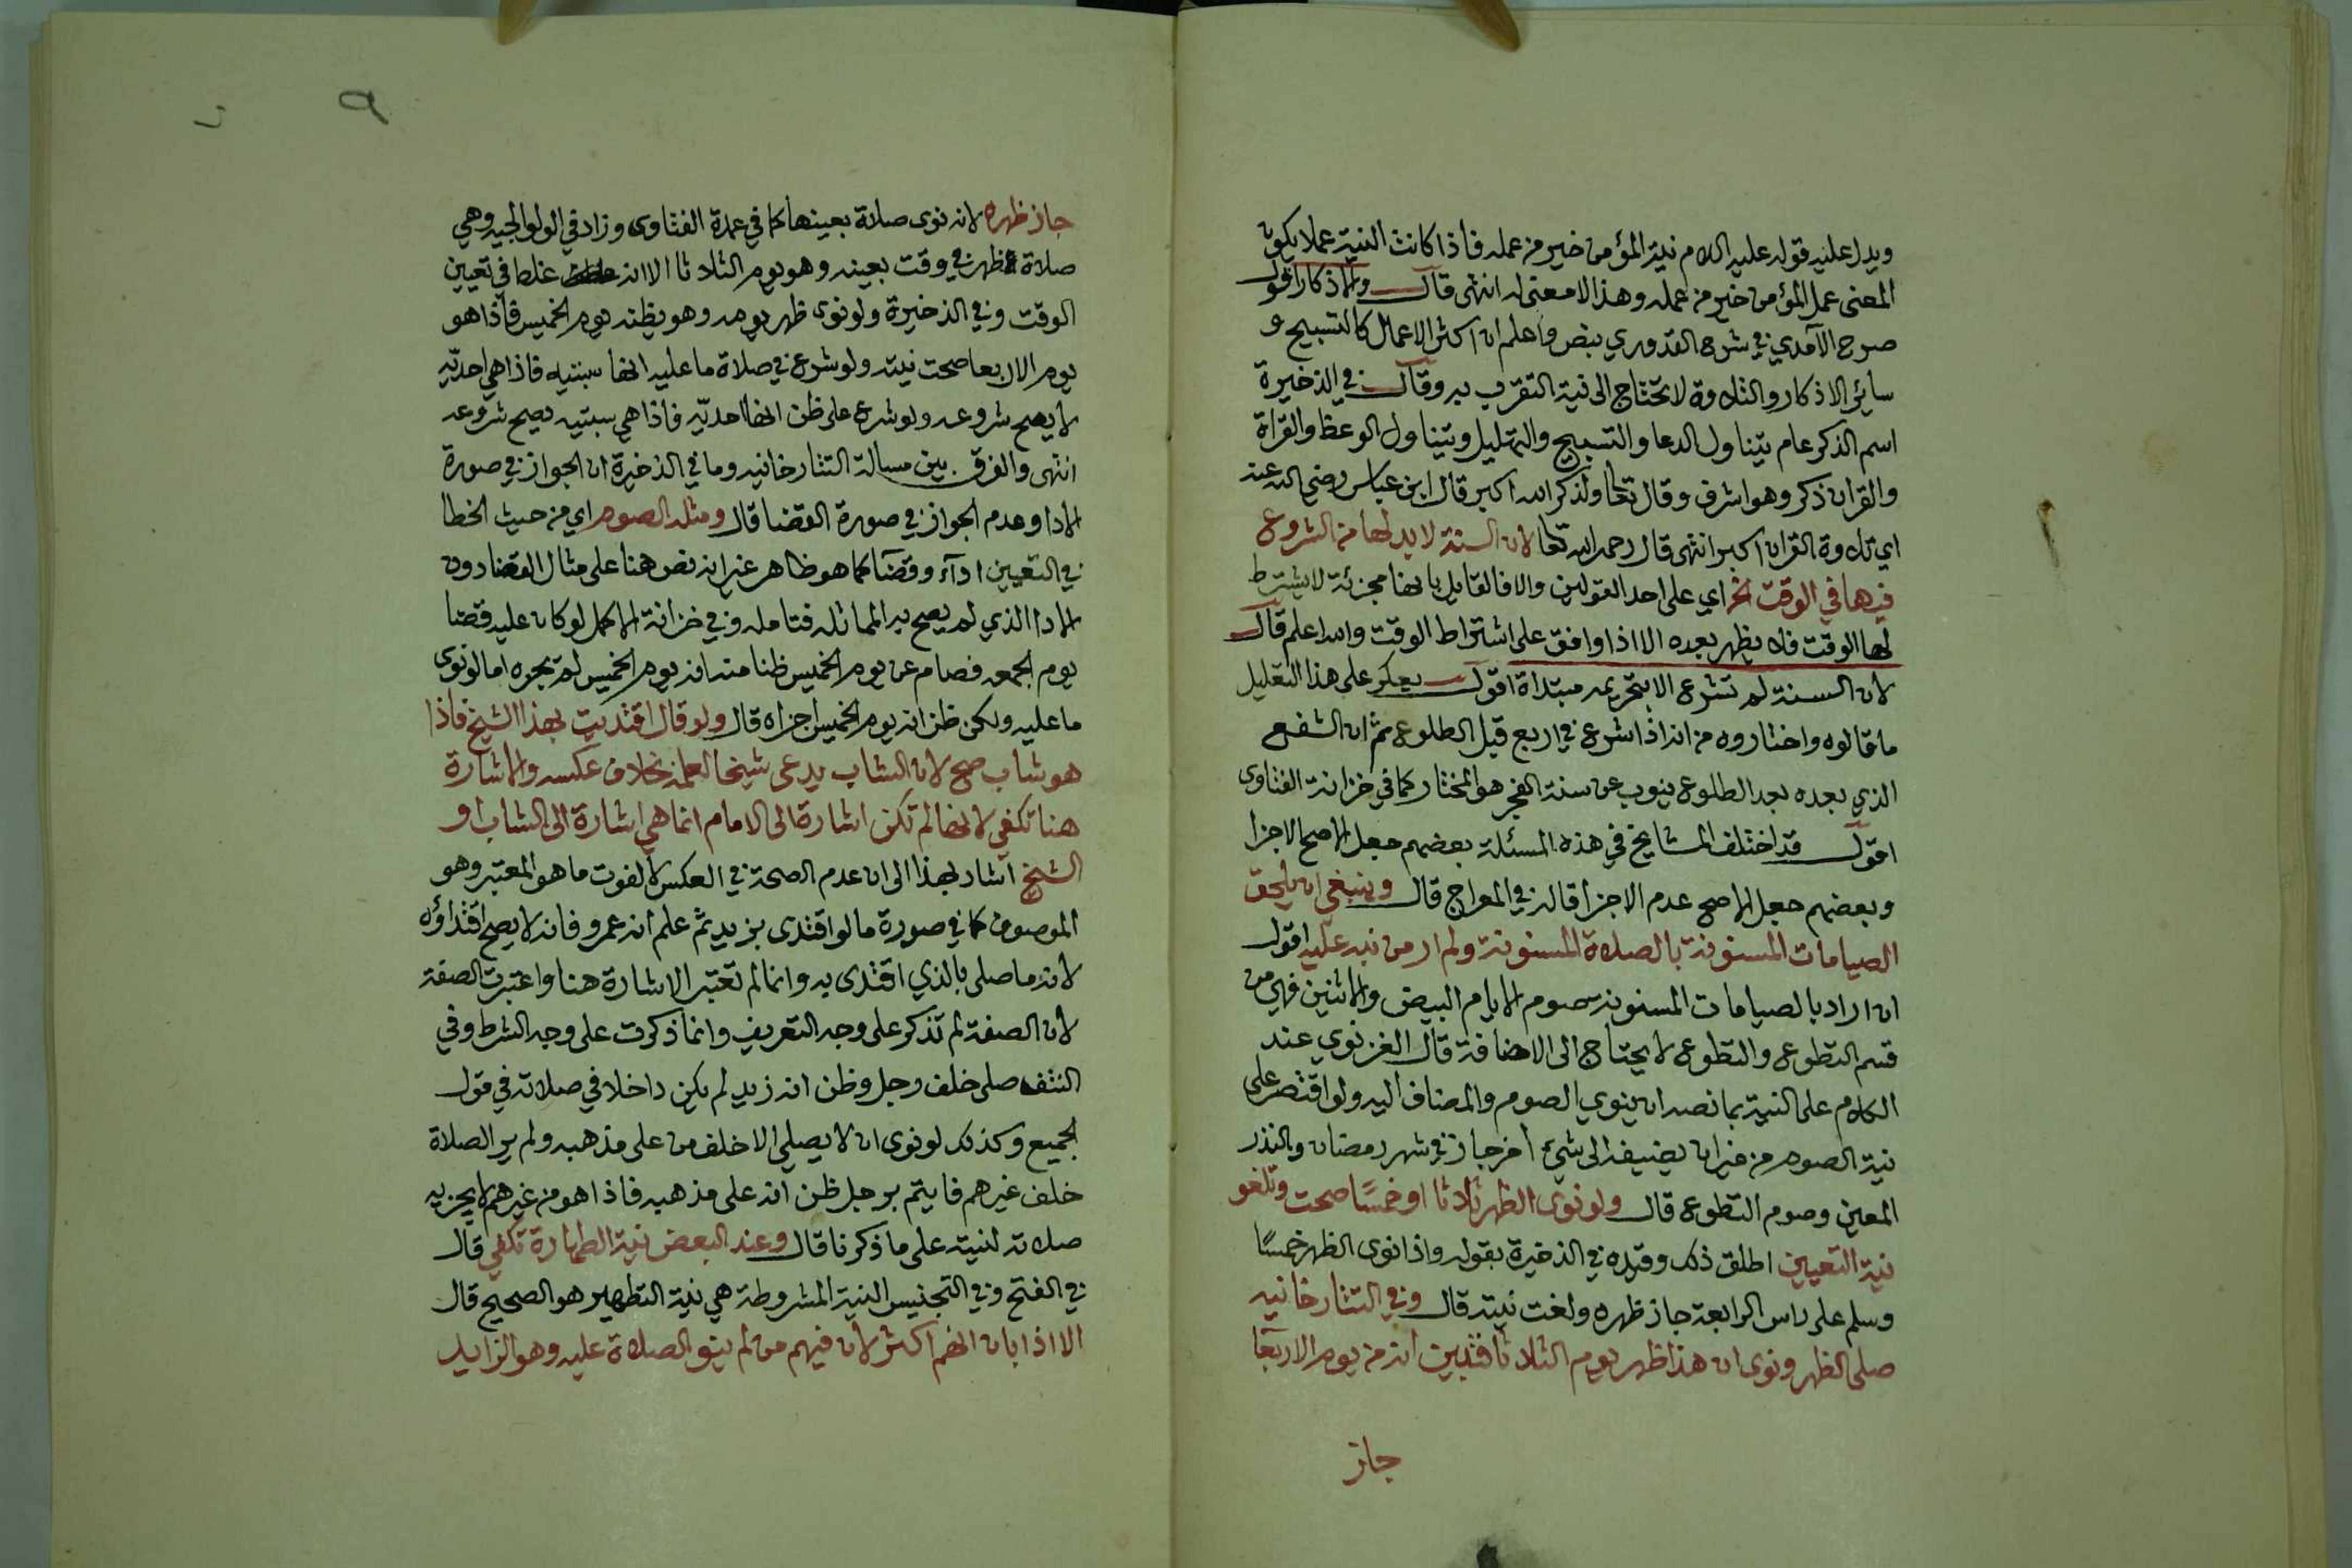 ويدل عليه قوله عليه اللام نية المؤمن خير من عمله فاذا كانت النية عملا يكون
المعنى عمل المؤمن خير من عمله وهذا لامعنى له انتهى قال والاذكار اقول
صرح الآمدي في شرح القدوري بنص واعلم ان اكثر الاعمال كالتسبيح و
سائر الاذكار والتلاوة لا تحتاج الى نية التقرب به وقال في الذخيرة
اسم الذكر عام يتناول الدعا والتسبيح والتهليل ويتناول الوعظ والقراة
والقران ذكر وهو اشرف وقال تعا ولذكر الله اكبر قال ابن عباس رضي الله عنه
اي تلاوة القران اكبر انتهى قال رحمه الله تعا لان السنة لا بد لها من الشروع
فيها في الوقت الخ اي على احد القولين والا فالقايل بانها مجزئة لا يشترط
لها الوقت فلا يظهر بعده الا اذا وافق على اشتراط الوقت والله اعلم قال
لان السنة لم تشرع الا بتحريمه مبتداة اقول يعكر على هذا التعليل
ما قالوه واختاروه من انه اذا شرع في اربع قبل الطلوع ثم ان الشفع
الذي بعده بعد الطلوع ينوب عن سنة الفجر هو المختار كما في خزانة الفتاوى
اقول قد اختلف المشايخ في هذه المسئلة بعضهم جعل الاصح الاجزا
وبعضهم جعل الاصح عدم الاجزا قاله في المعراج قال وينبغي ان يلحق
الصيامات المسنونة بالصلاة المسنونة ولم ار من نبه عليه اقول
ان اراد بالصيامات المسنونه صوم الايام البيض والاثنين فهي من
قسم التطوع والتطوع لا يحتاج الى الاضافة قال الغزنوي عند
الكلام على النية بما نصه ان ينوي الصوم والمضاف اليه ولو اقتصر على
نية الصوم من غير ان يضيفه الى شيء اخر جاز في شهر رمضان والنذر
المعين وصوم التطوع قال ولو نوى الظهر ثلاثا او خمسًا صحت وتلغو
نية التعيين اطلق ذلك وقيده في الذخيرة بقوله واذا نوى الظهر خمسًا
وسلم على راس الرابعة جاز ظهره ولغت نيته قال وفي التتارخانيه
صلى الظهر ونوى ان هذا ظهر يوم الثلاثا فتبين انه من يوم الاربعا
جاز
٩
جاز ظهره لانه نوى صلاة بعينها كما في عمدة الفتاوى وزاد في الولوالجيه وهي
صلاة ظهر في وقت بعينه وهو يوم الثلاثا الا انه غلط في تعيين
الوقت وفي الذخيرة ولو نوى ظهر يومه وهو يظنه يوم الخميس فاذا هو
يوم الاربعا صحت نيته ولو شرع في صلاة ما عليه انها سبتيه فاذا هي احديّه
لا يصح شروعه ولو شرع على ظن انها احديّه فاذا هي سبتيه يصح شروعه
انتهى والفرق بين مسالة التتارخانيه وما في الذخيرة ان الجواز في صورة
الادا وعدم الجواز في صورة القضا قال ومثله الصوم اي من حيث الخطا
في التعيين اداء وقضآ كما هو ظاهر غير انه نص هنا على مثال القضا دون
الادا الذي لم يصح به المماثله فتامله وفي خزانة الاكمل لو كان عليه قضا
يوم الجمعه فصام عن يوم الخميس ظنا منه انه يوم الخميس لم يجزه اما لو نوى
ما عليه ولكن ظن انه يوم الخميس اجزاه قال ولو قال اقتديت بهذا الشيخ فاذا
هو شاب صح لان الشاب يدعى شيخا لعلمه بخلاف عكسه والاشارة
هنا تكفي لانها لم تكن اشارة الى الامام انما هي اشارة الى الشاب او
الشيخ اشار بهذا الى ان عدم الصحة في العكس لا لفوت ما هو المعتبر وهو
الموصوف كما في صورة ما لو اقتدى بزيد ثم علم انه عمرو فانه لا يصح اقتداؤه
لانه ما صلى بالذي اقتدى به وانما لم تعتبر الاشارة هنا واعتبرت الصفة
لان الصفة لم تذكر على وجه التعريف وانما ذكرت على وجه الشرط وفي
النتف صلى خلف رجل وظن انه زيد لم يكن داخلا في صلاته في قول
الجميع وكذلك لو نوى ان لا يصلي الا خلف من على مذهبه ولم ير الصلاة
خلف غيرهم فايتم برجل ظن انه على مذهبه فاذا هو من غيرهم لا يجزيه
صلاته لنيته على ما ذكرنا قال وعند البعض نية الطهارة تكفي قال
في الفتح وفي التجنيس النية المشروطة هي نية التطهير هو الصحيح قال
الا اذا بان انهم اكثر لان فيهم من لم ينو الصلاة عليه وهو الزايد